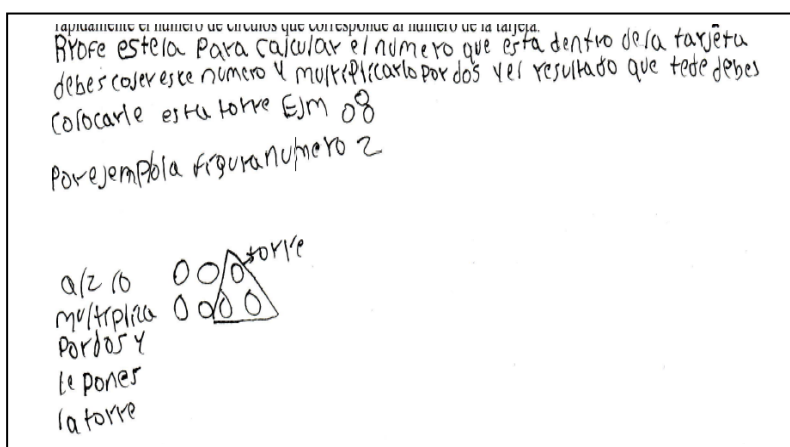 rápidamente el número de círculos que corresponde al número de la tarjeta.
Profe estela para calcular el número que esta dentro de la tarjeta
debes coser este numero y multiplicarlo por dos y el resultado que tede debes
colocarle esta torre EJm
Por ejemplo la figura numero 2
torre
al 2 lo
multiplica
por dos y
le pones
la torre